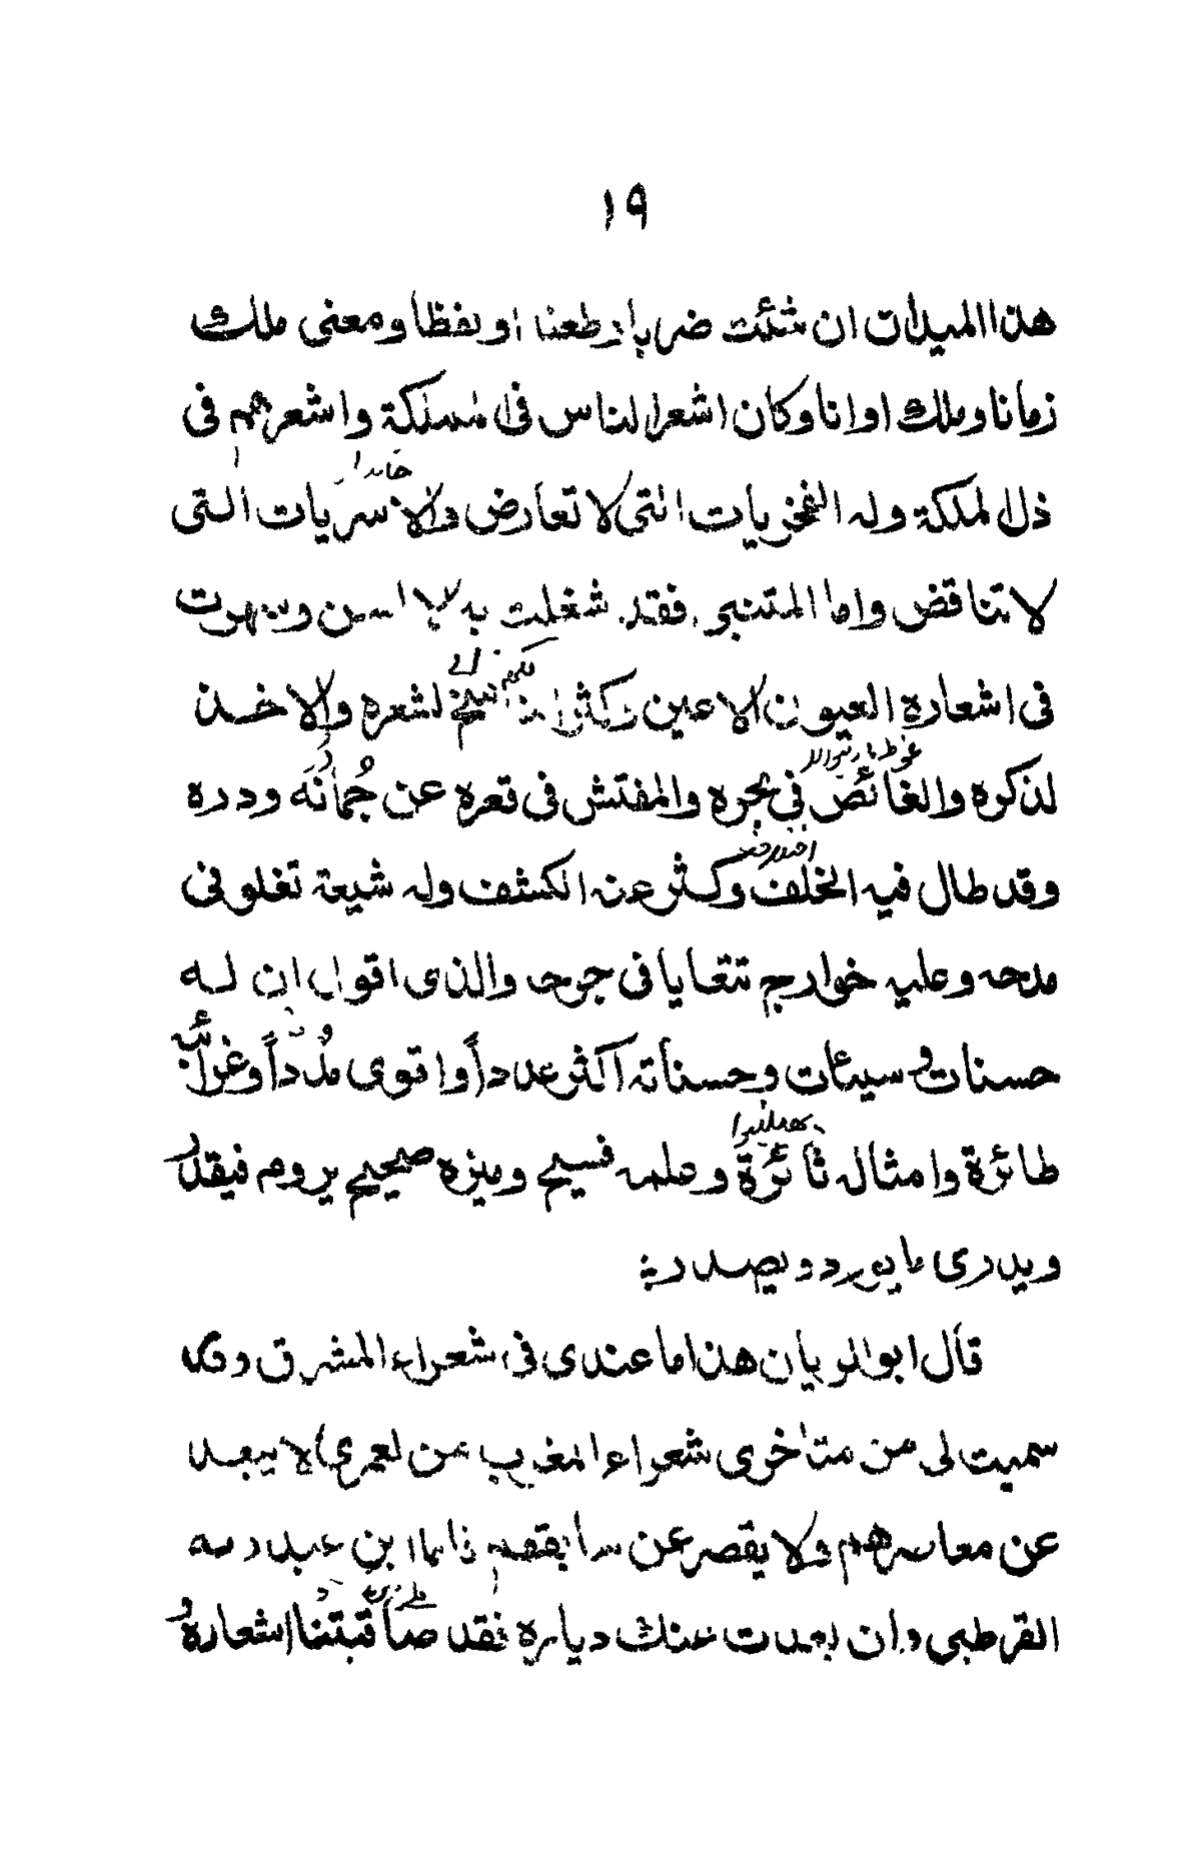 ١٩
هذا الميدان ان شئت ضربا وطعنا او لفظا ومعنى ملك
زمانا وملك اوانا وكان اشعر الناس فى مملكة واشعرهم فى
ذل لملكة وله الفخريات التى لا تعارض والاسريات التى
لا تناقض واما المتنبى فقد شغلت به الا لسن وسهرت
فى اشعاره العيون الاعين وكثر الناسخ لشعره والاخذ
لذكره والغائص فى بحره والمفتش فى قعره عن جُمانَه ودره
وقد طال فيه الخلف وكثر عنه الكشف وله شيعة تغلو فى
مدحه وعليه خوارج تتعايا فى جرحه والذى اقول ان له
حسنات وسيئات وحسناته اكثر عدداً واقوى مُدداً وغرائبه
طائرة وامثاله ثائرة وعلمه فسيح وميزه صحيح يروم فيقدر
ويدرى ما يورد ويصدر به
قال ابو الريان هذا ما عندى فى شعراء المشرق وقد
سميت لى من متاخرى شعراء المغرب من لعمرى لا يبعد
عن معاصرهم ولا يقصر عن سابقهم فاما ابن عبد ربه
القرطبى وان بعدت عنك دياره فقد صاقبتنا اشعاره